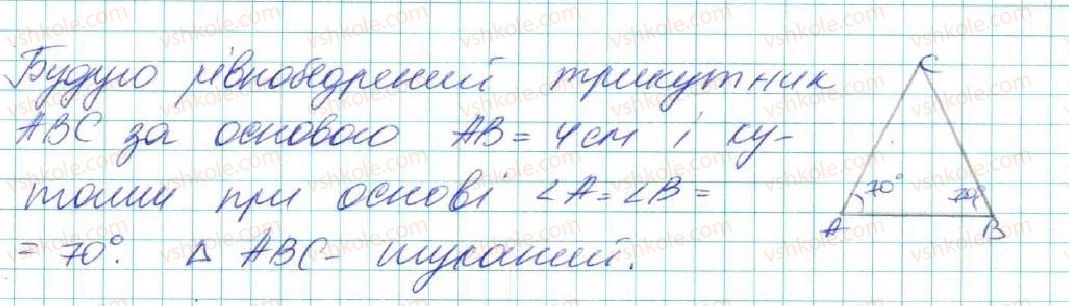 Будую рівнобедрений трикутник
ABC за основою AB = 4 см і ку-
тами при основі ∠A = ∠B =
= 70°. △ ABC - шуканий.
C
70° 70°
A B